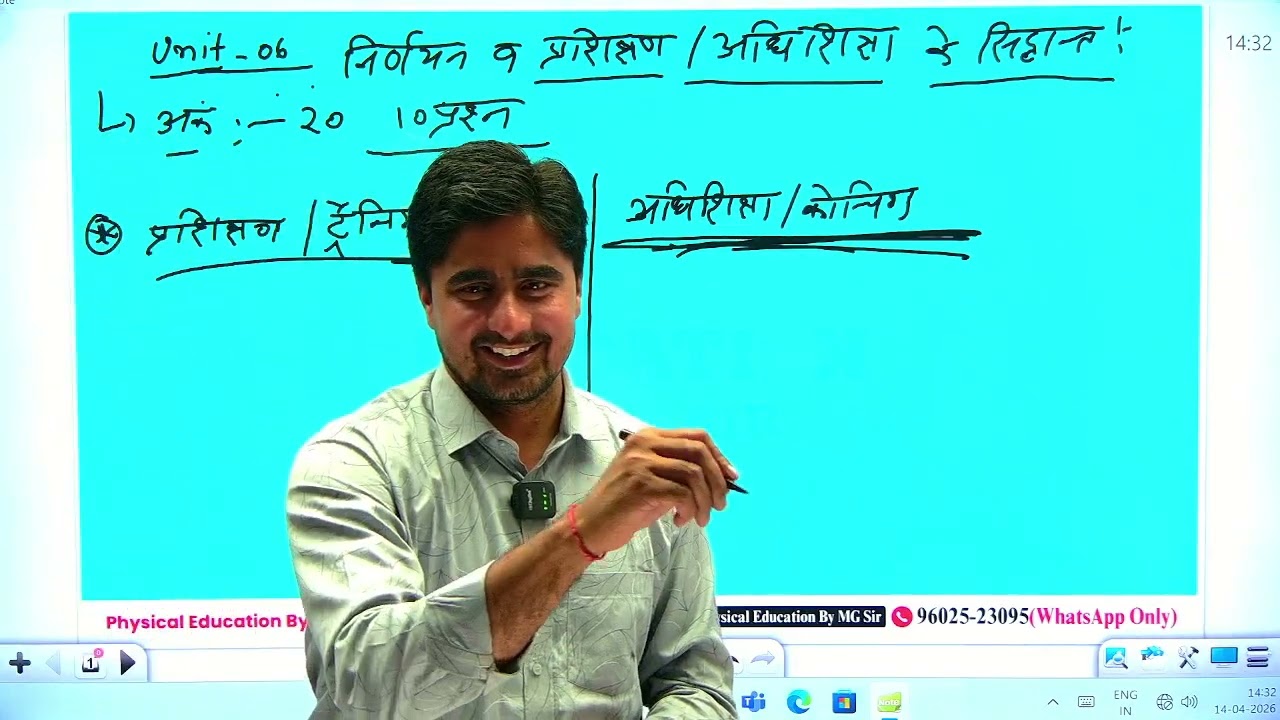 Unit - 06 निर्णयन व प्रशिक्षण / अधिशिक्षा के सिद्धान्त :-
अंक :- 20 10 प्रश्न
प्रशिक्षण / ट्रेनिंग अधिशिक्षा / कोचिंग
Physical Education By sical Education By MG Sir 96025-23095(WhatsApp Only)
14:32
1
ENG
IN
14:32
14-04-2026